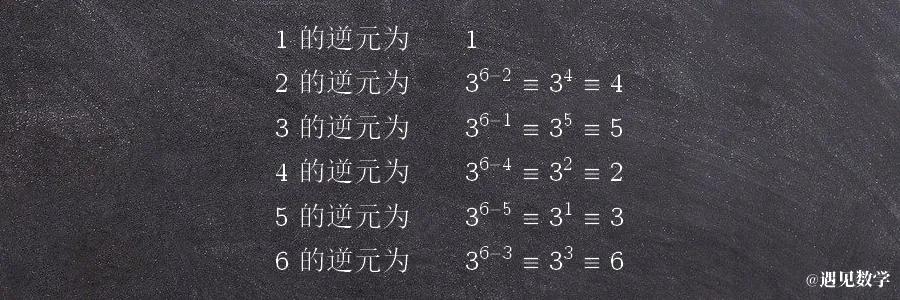 1 的逆元为 1
2 的逆元为 3^{6-2} ≡ 3^4 ≡ 4
3 的逆元为 3^{6-1} ≡ 3^5 ≡ 5
4 的逆元为 3^{6-4} ≡ 3^2 ≡ 2
5 的逆元为 3^{6-5} ≡ 3^1 ≡ 3
6 的逆元为 3^{6-3} ≡ 3^3 ≡ 6
@遇见数学